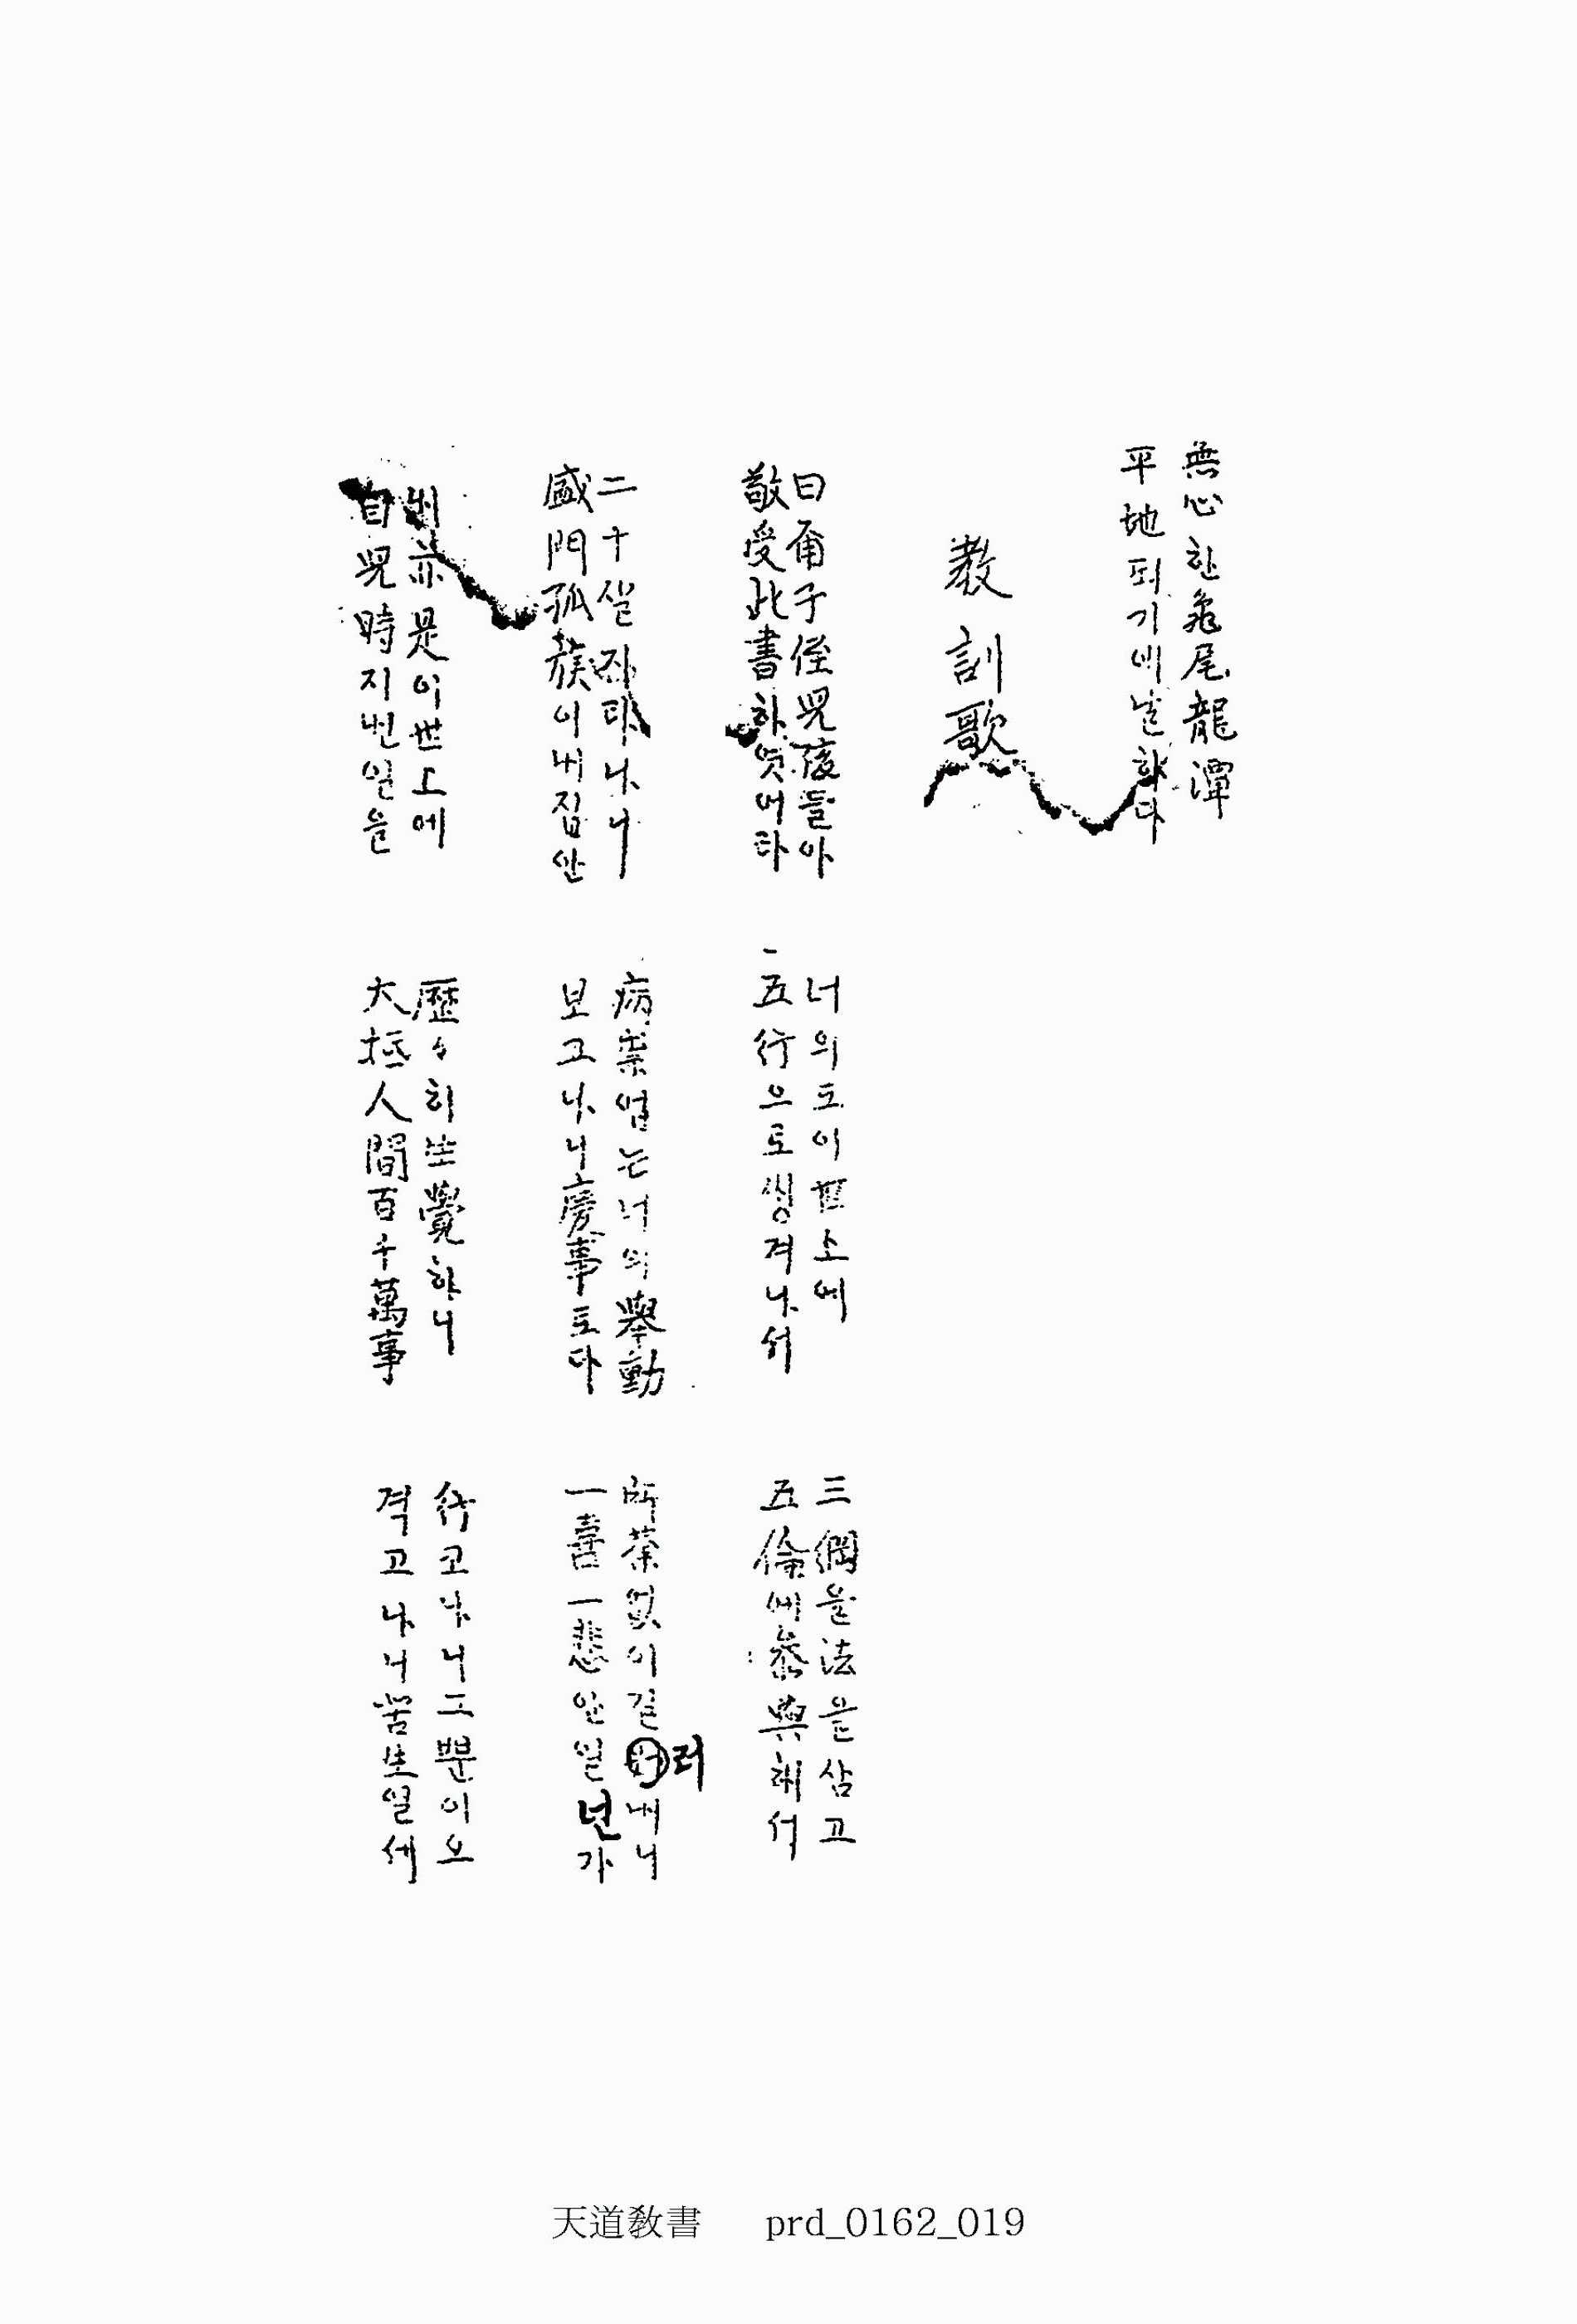 無心한龜尾龍潭
平地되기애닯하다
敎訓歌
曰爾子侄兒孩들아
敬受此書하엿어라
너의도이世上에
五行으로씽겨나서
三綱을法을삼고
五倫에參與해서
二十살자라나니
盛門孤族이내집안
病祟업는너의擧動
보고나니慶事로다
所業없이길러내니
一喜一悲안일년가
내亦是이世上에
自兒時지낸일을
歷々히生覺하니
大抵人間百千萬事
行코나니그뿐이오
격고나니苦生일세
天道敎書 prd_0162_019